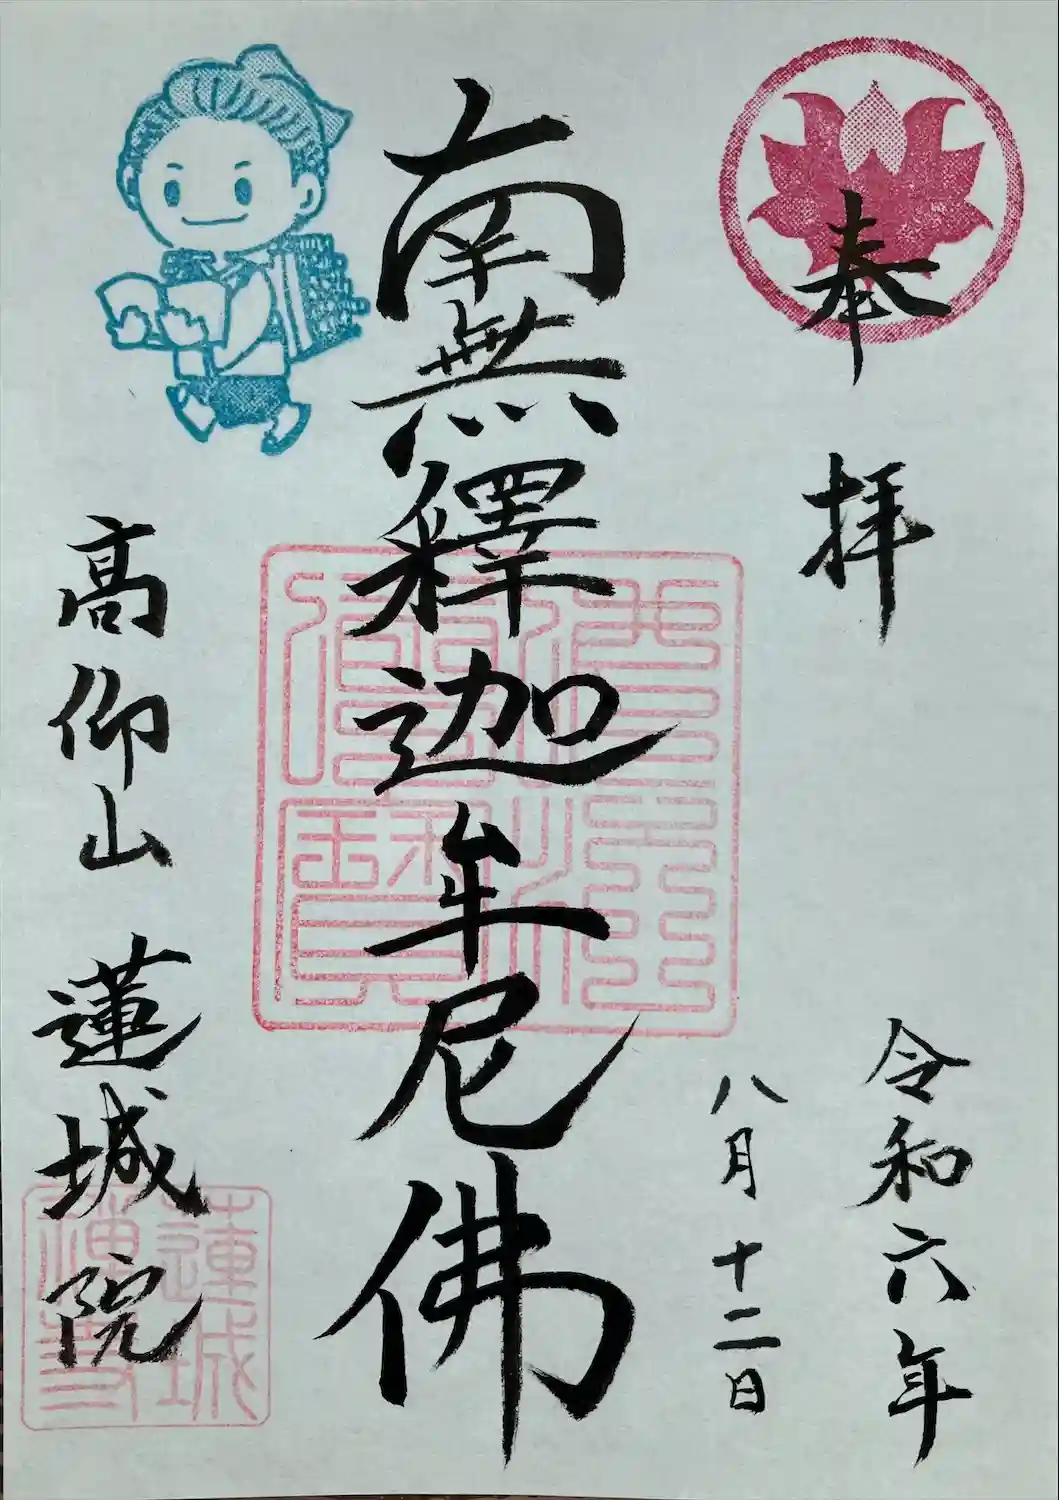 奉拝
令和六年
八月十二日
南無釋迦牟尼佛
高仰山 蓮城院
佛法僧寶